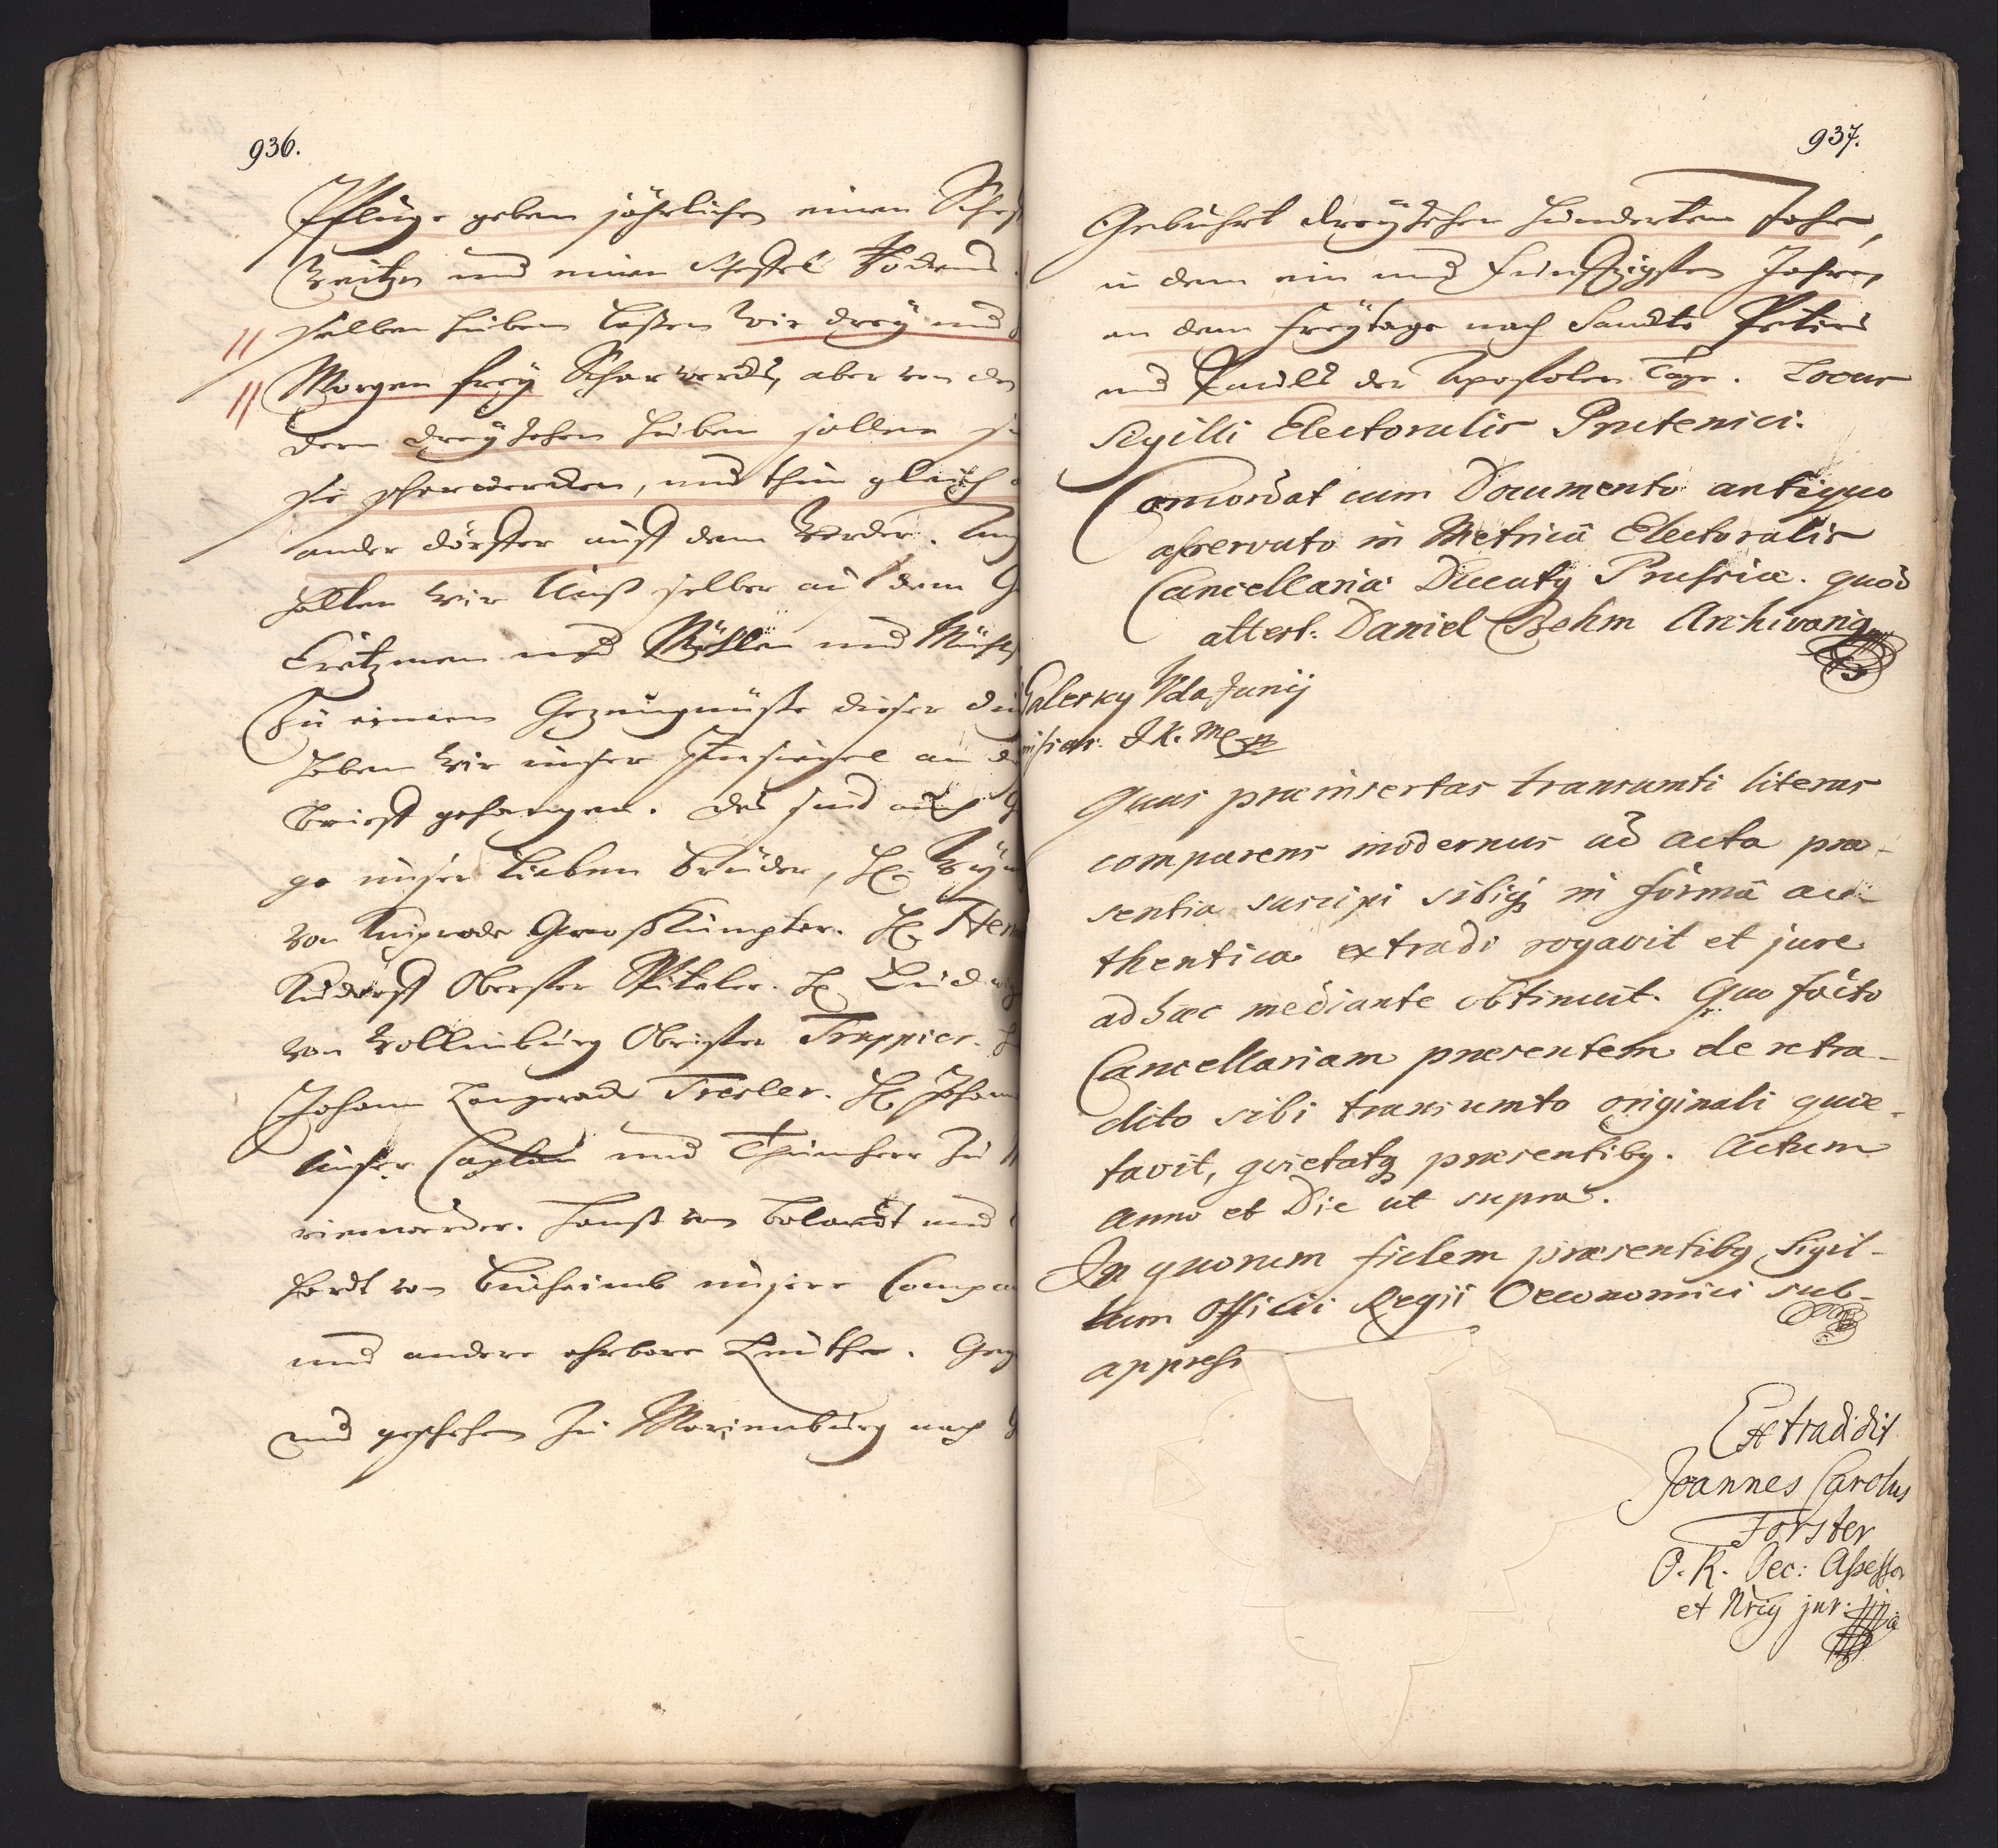 936.
Pfluge geben jährlichen einen Scheff
Weitzen und einen Scheffel
selben huben laßen wir drey und
Morgen frey Scharwercks, aber von de
dern dreyzehen huben sollen s
sie scharwercken, und thun gleich
ander dörffer auff dem Werder.
halten wir Unß selber auf dem
Cretzmen und Mühlen und Mühl
Zu einem Gezeugnüße dieser din
haben wir unser Insiegel an d
Brieff gehangen. des sind auch G
ge unser Lieben Brüder, H. Wyn
von Kniprode GroosKumpter. H. Hen
Kudorff Oberster Spitaler. H. Ludwig
von Wolkinburg Obrister Trappier. H
Johann Langerack Tresler. H. Johan
Unser Caplan und Thumherr zu M
rienwerder. Hanß von Bolandt und
hardt von Bucheimb unsere Compa
und andere ehrbare Leuthe. Geg
und geschehen zu Marienburg nach G
937.
Gebuhrt dreyzehen hunderten Jahr,
in dem ein und funffzigsten Jahre,
an dem freytage nach Sandte Peters
und Pauls der Apostolen Tage. Locus
Sigilli Electoralis Prutenici.
Concordat cum Documento antiquo
asservato in Metricâ Electoralis
Cancellariæ Ducatq Prussiæ. quod
attest: Daniel Behm Archivariq
Salesky Vda Junij
J. K. Mci
Quas præinsertas transumti literas
comparens modernus ad acta præ-
sentia suscipi sibiq in formâ au-
thentica extradi rogavit et jure
ad hæc mediante obtinuit. Quo facto
Cancellariam præsentem de retra-
dito sibi transumto originali quie-
tavit, quietatq præsentibq. Actum
Anno et Die ut supra.
In quorum fidem præsentibq Sigil-
lum Officii Regii Oeconomici sub-
appressi
Extradidit
Joannes Carolus
Forster
O. R. Oec: Assessor
et Nriq jur: mpia